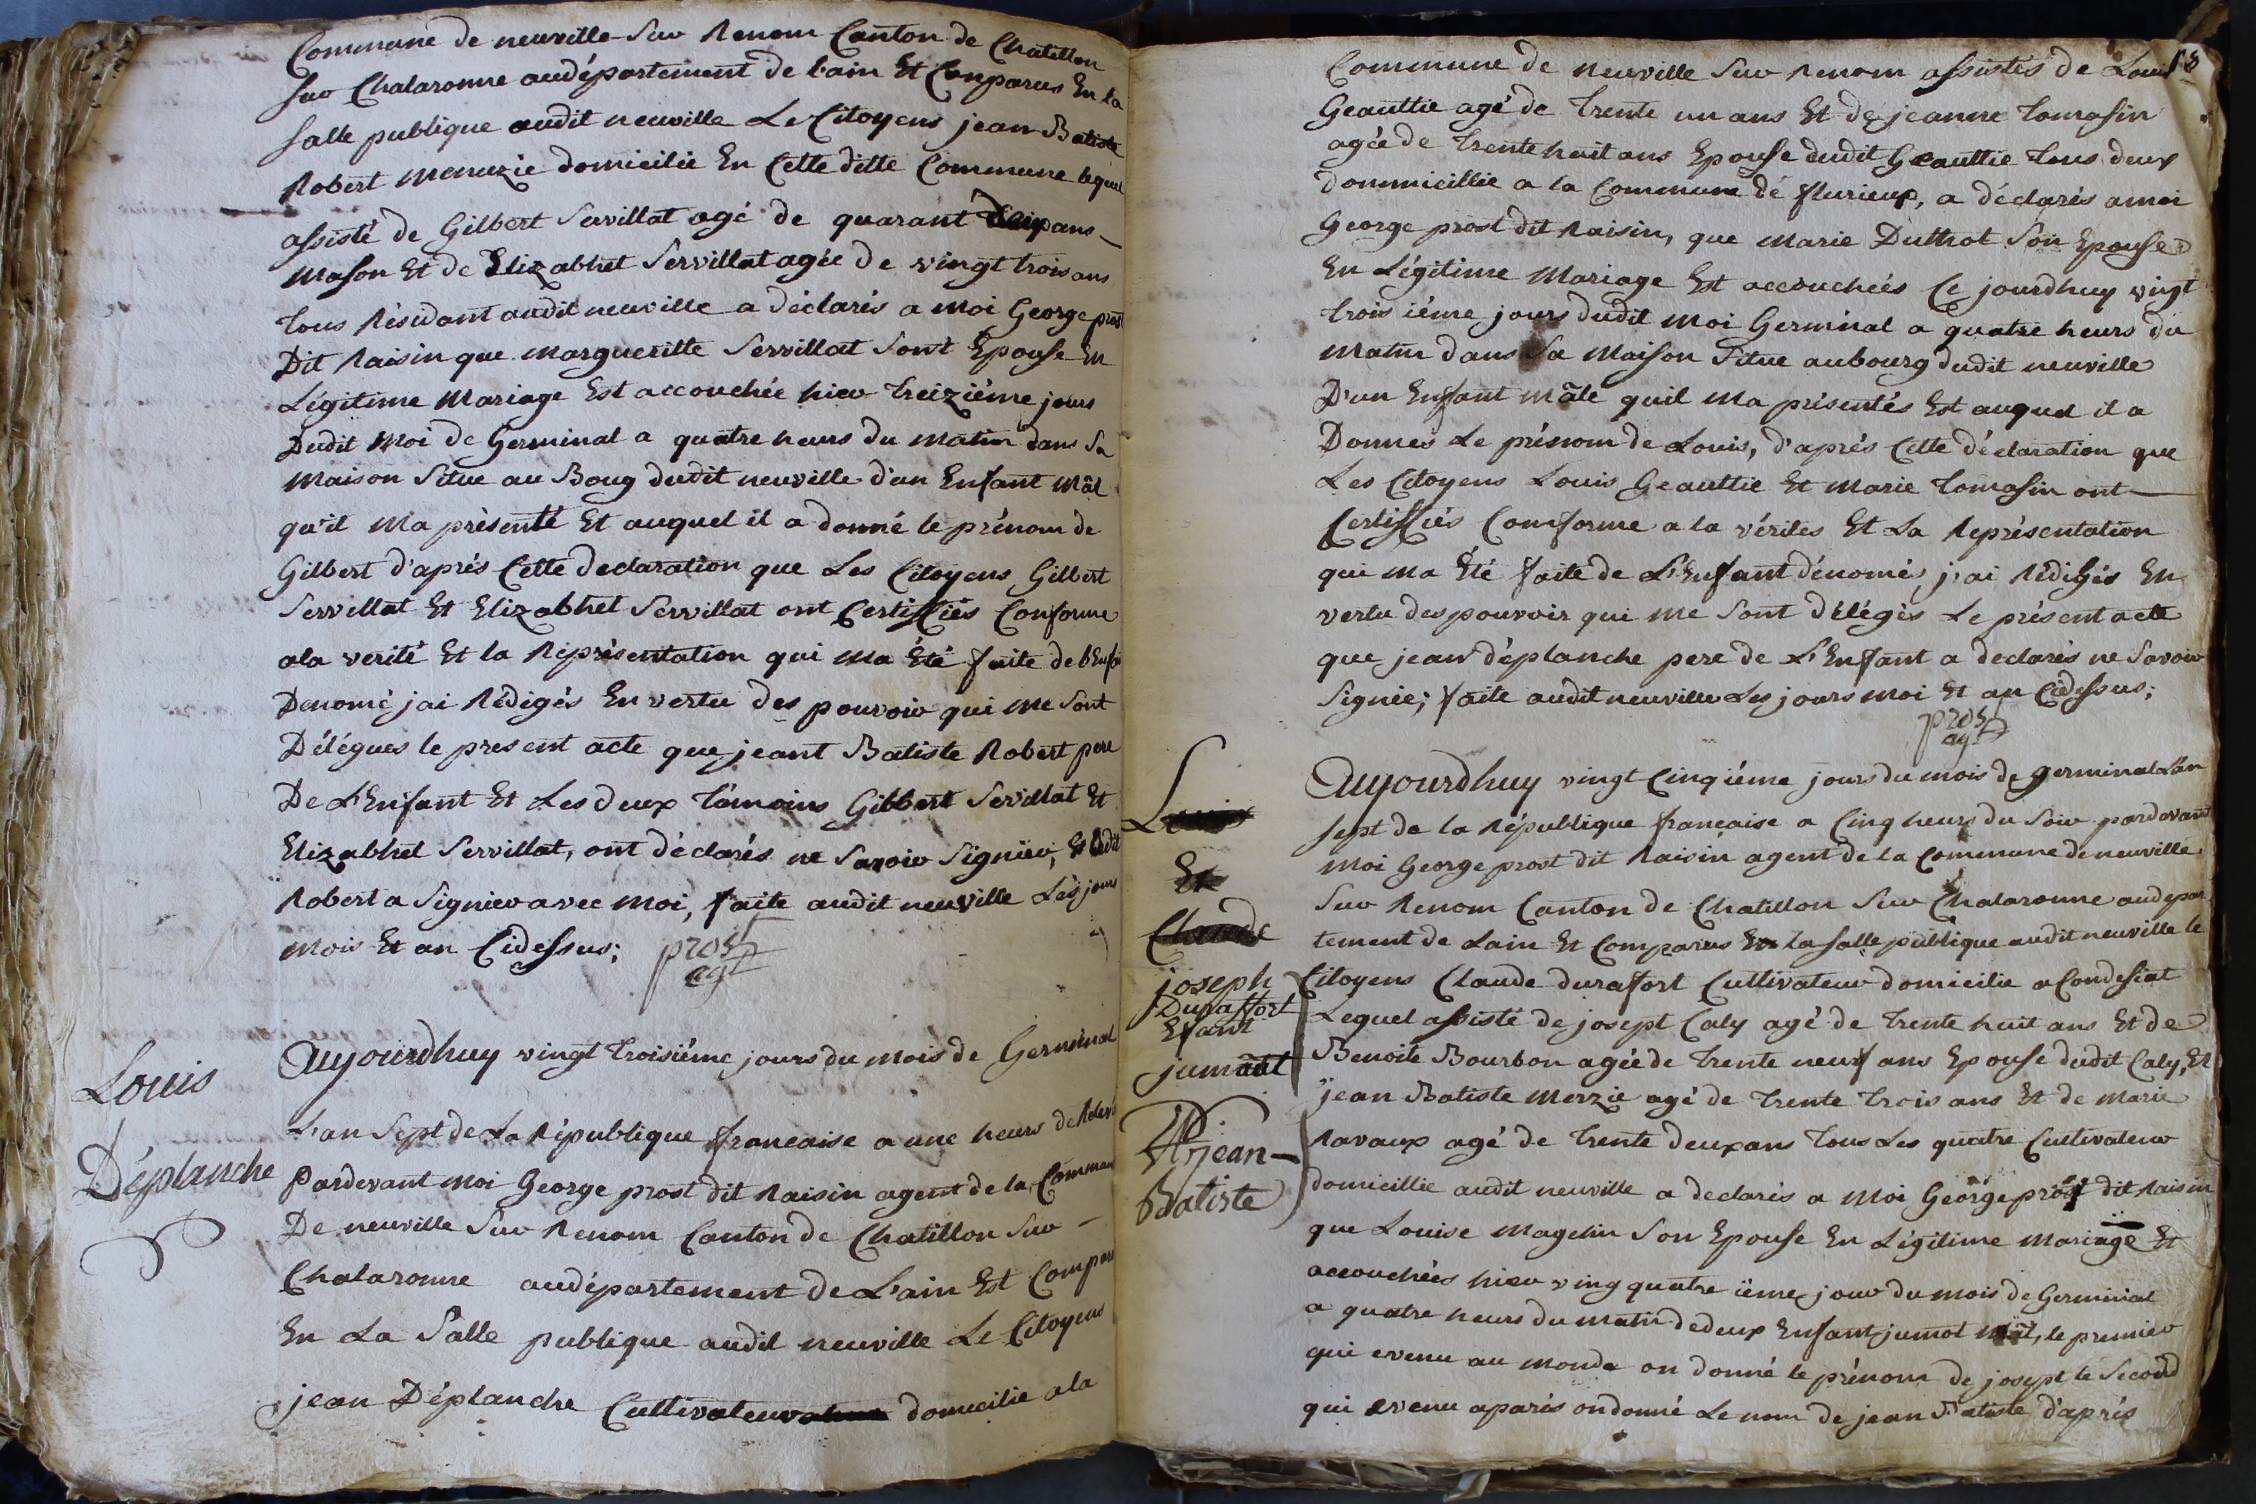 Commune de neuville Sur Renom Canton de Chatillon
sur Chalaronne audépartement de Lain Et Conparus En la
salle publique audit neuville Le Citoyens jean Batiste
Robert menuzie domicilie En Cette ditte Commune lequel
assisté de Gilbert Servillat agé de quarant deux ans
Mason Et de Elizabhet Servillat agée de vingt trois ans
tous Résidant audit neuville a déclarés a moi George prost
Dit Raisin que margueritte Servillat Sont Epouse En
Légitime Mariage Est accouchée hier treiziéme jours
Dudit Moi de Germinal a quatre heurs du matin dans Sa
Maison Situe au Boug dudit neuville d'un Enfant Mâl
qu'il Ma présenté Et auquel il a donné le prénom de
Gilbert d'aprés Cette declaration que Les Citoyens Gilbert
Servillat Et Elizabhet Servillat ont Certiffiés Conforme
ala verité Et la Représentation qui Ma Eté faite de l'Enfan
Denomé jai Rédigés En vertu des pouvoir qui me Sont
Délégues le present acte que jeant Batiste Robert pere
De L'Enfant Et Les deux témoins Gilbert Servillat Et
Elizabhet Servillat, ont déclarés ne Savoir Signier, Et ledit
Robert a Signier avec moi, faite audit neuville Les jours
mois Et an Cidessus;
prost
ag
Louis
Déplanche
Aujourdhuy vingt troisiéme jours du mois de Germinal
L'an Sept de La République francaise a une heurs de Relevé
Pardevant moi George prost dit Raisin agent de la Commun
De neuville Sur Renom Canton de Chatillon Sur
Chalaronne audépartement de L'ain Est Comparu
En La Salle publique audit neuville Le Citoyens
jean Déplanche Cultivateur domicilie ala
13
Commune de neuville Sur Renom assistés de Louis
Geauttie agé de trente un ans Et de jeanne tomasin
agée de trente huit ans Epouse dudit Geauttie tous deux
dommicillie a la Commune dé flurieux, a déclarés amoi
George prost dit Raisin, que Marie Duthrot Son Epouse
En Légitime Mariage Est accouchées Ce jourdhuy vingt
trois iéme jours dudit moi Germinal a quatre heurs du
Matin dans Sa Maison Situe aubourg dudit neuville
D'un Enfant Mâle quil Ma présentés Est auquel il a
Donnés Le prénom de Louis, d'aprés Cette déclaration que
Les Citoyens Louis Geauttie Et Marie tomasin ont
Certiffiés Comforme a la vérites Et La Représentation
qui ma Eté faite de L'Enfant dénomés j'ai Rédigés En
vertu des pouvoir qui me Sont délégés Le présent acte
que jean déplanche pere de L'Enfant a declarés ne Savoir
Signié; faite audit neuville Les jours Moi Et an Cidessus;
prost
ag
Louis
Et
Claude
joseph
Duraffort
Efant
jumâtt
jean
Batiste
Aujourdhuy vingt Cinqiéme jours du mois de germinal Lan
sept de la République française a Cinq heurs du Soir pardevant
Moi George prost dit Raisin agent de la Commune de neuville
Sur Renom Canton de Chatillon Sur Chalaronne audepar
tement de Lain Et Comparus En la salle publique audit neuville le
Citoyens Claude durafort Cultivateur domicilie a Condesiat
Lequel assisté de josept Caly agé de trente huit ans Et de
Benoite Bourbon agée de trente neuf ans Epouse dudit Caly, Et
jean Batiste Merzie agé de trente trois ans Et de marie
Ravaux agé de trente deux ans tous Les quatre Cultivateur
domicillie audit neuville a declarés a Moi George prost dit Raisin
que Louise Magelin Son Epouse En Légitime Mariage Et
accouchées hier ving quatre iéme jour du mois de Germinal
a quatre heurs du matin dedeux Enfant jumot mât, le premier
qui evenu au monde on donné le prénom de josept le Second
qui evenu aparés ondonné Le nom de jean Batiste d'aprés